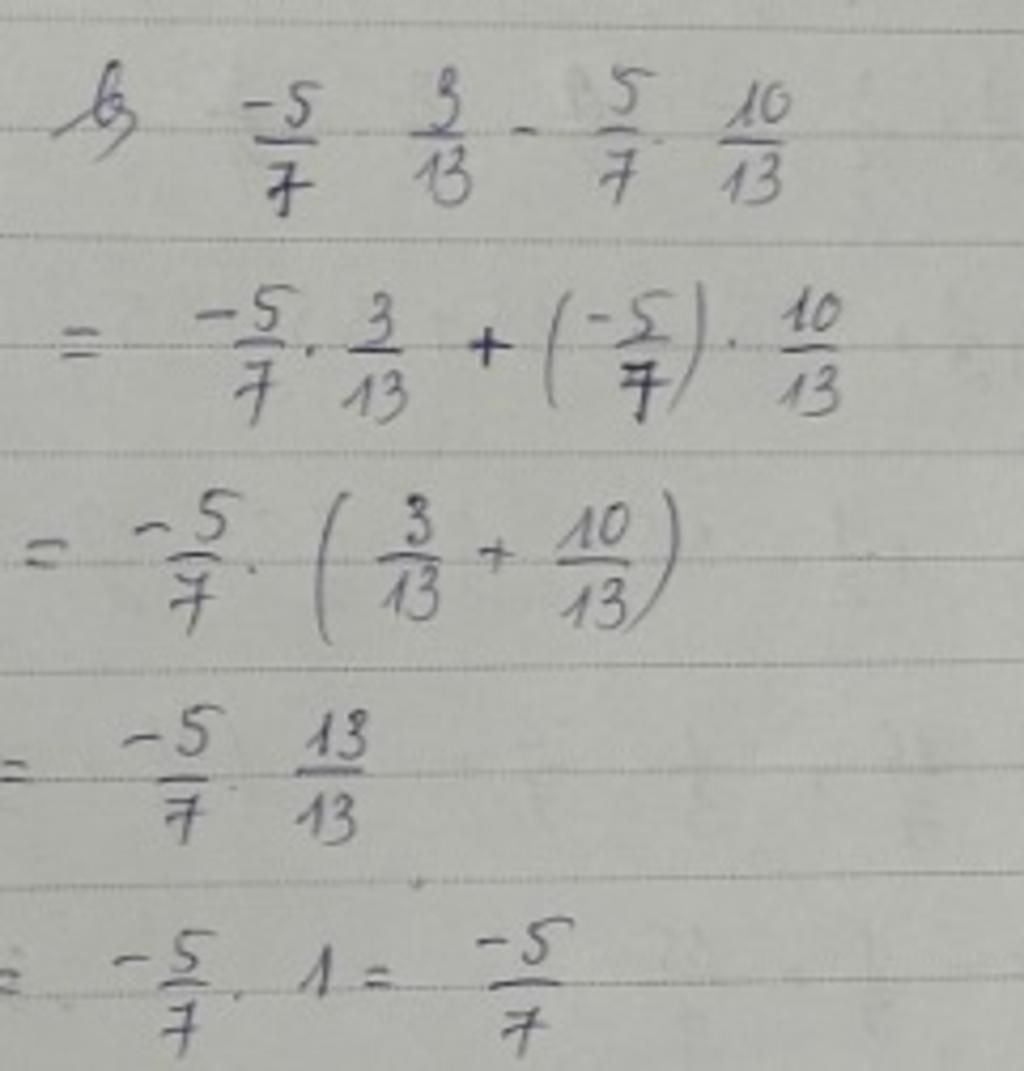 b) -5/7 · 3/13 - 5/7 · 10/13
= -5/7 · 3/13 + (-5/7) · 10/13
= -5/7 · (3/13 + 10/13)
= -5/7 · 13/13
= -5/7 · 1 = -5/7